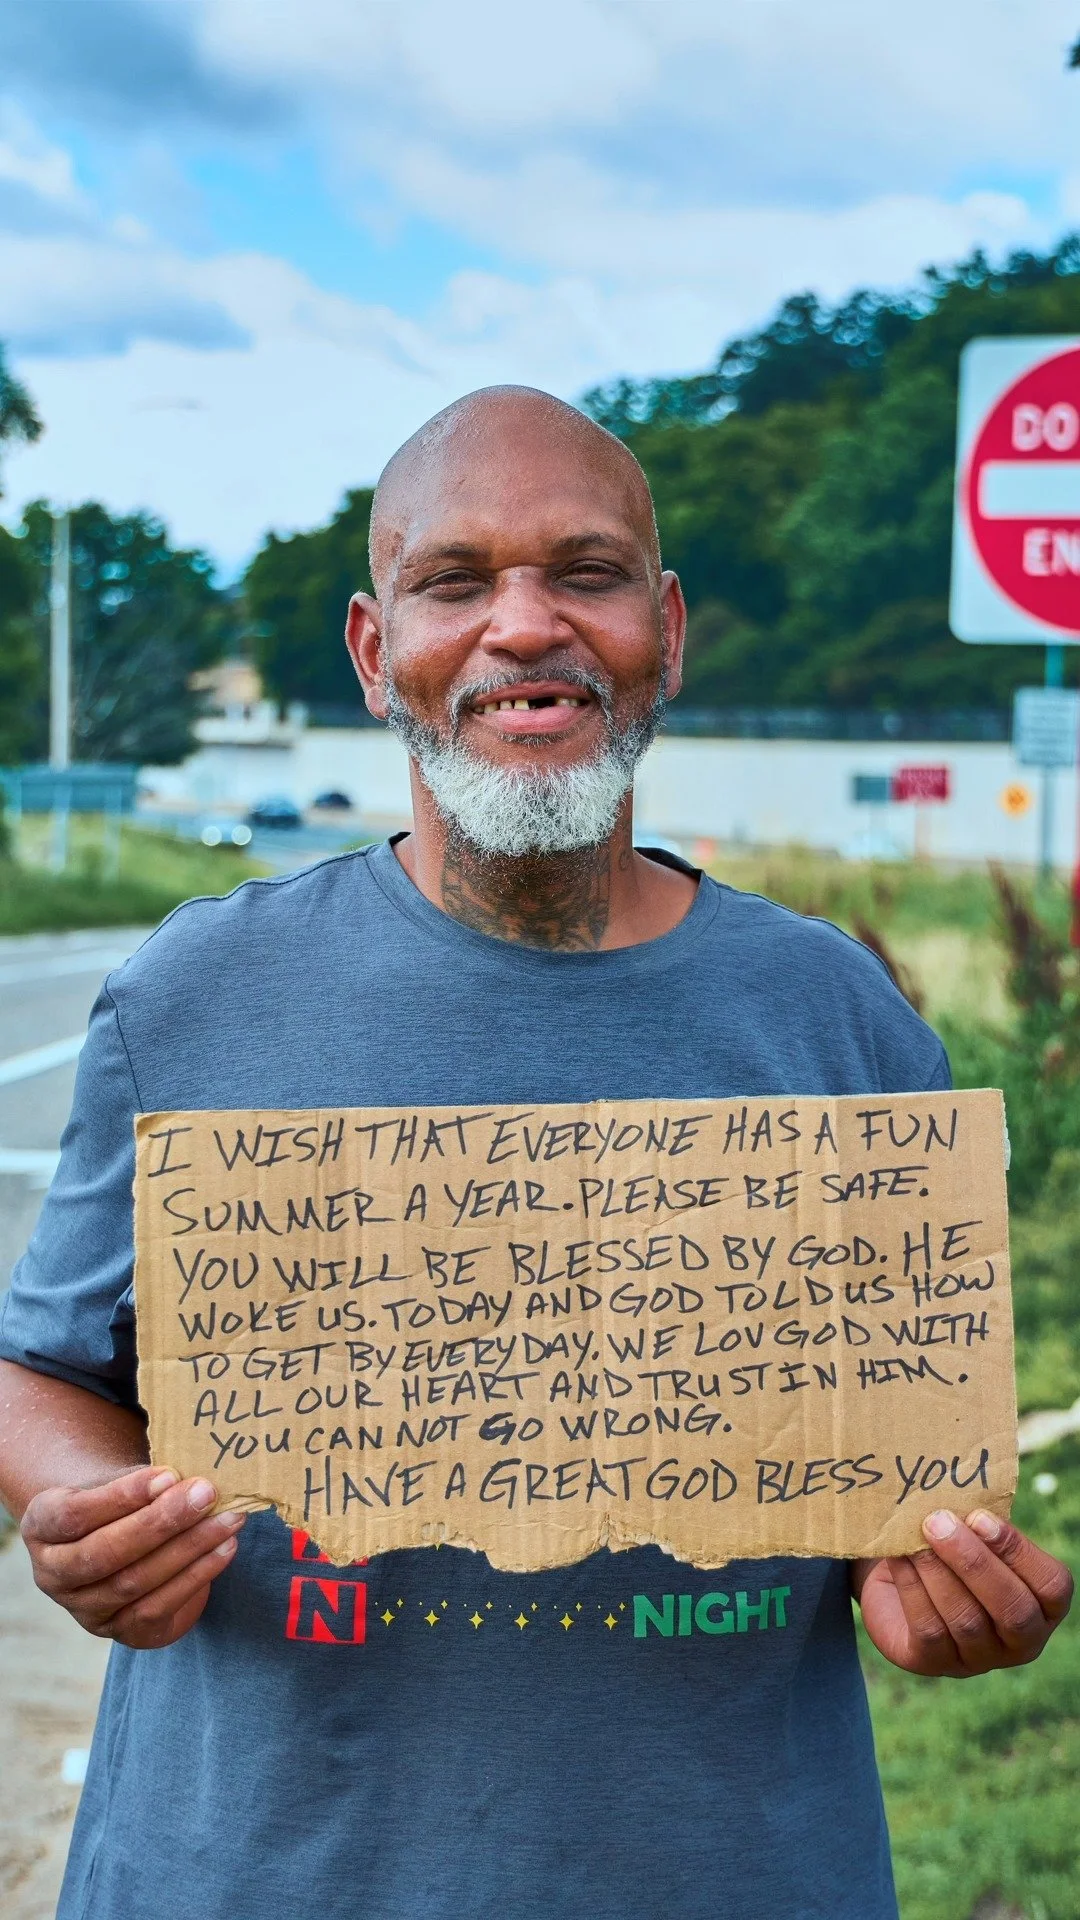 DO
EN
I WISH THAT EVERYONE HAS A FUN
SUMMER A YEAR. PLEASE BE SAFE.
YOU WILL BE BLESSED BY GOD. HE
WOKE US. TODAY AND GOD TOLD US HOW
TO GET BY EVERYDAY. WE LOV GOD WITH
ALL OUR HEART AND TRUST IN HIM.
YOU CAN NOT GO WRONG.
HAVE A GREAT GOD BLESS YOU
N NIGHT